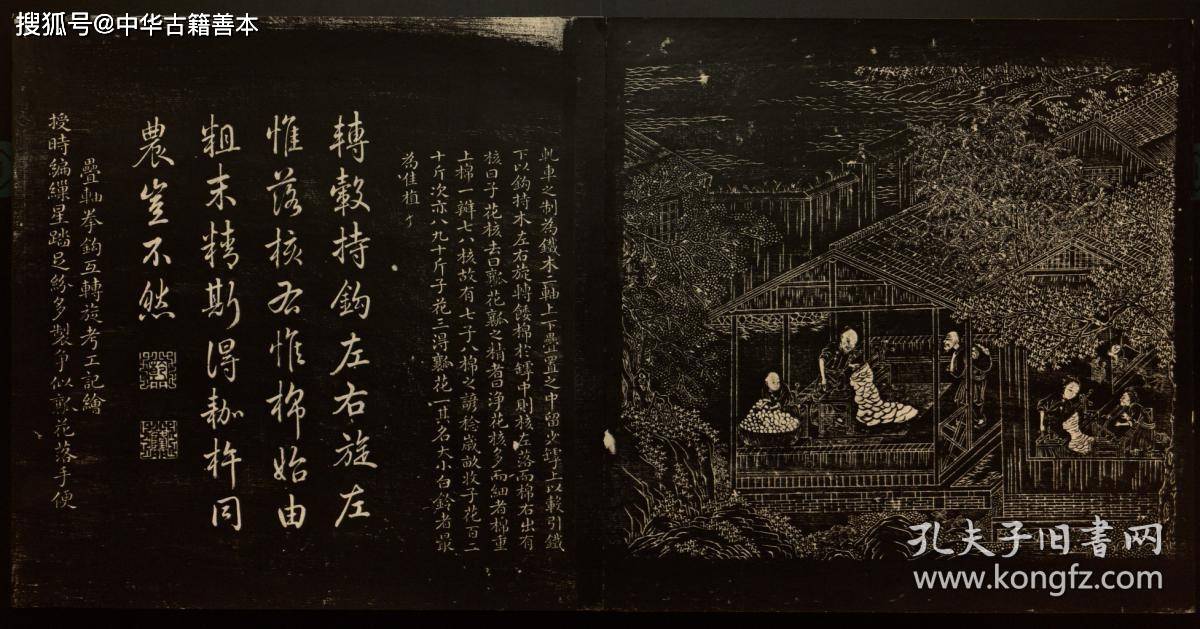 搜狐号@中华古籍善本
軋車之制為鐵木二軸上下疊置之中留少罅上以轂引鐵
下以鈎持木左右旋轉餧棉於罅中則核左落而棉右出有
核曰子花核去曰瓤花瓤之精者曰淨花核多而細者棉重
上棉一瓣七八核故有七子八棉之諺稔歲畝收子花百二
十斤次亦八九十斤子花三得瓤花一其名大小白鈴者最
為准植
轉轂持鈎左右旋左
惟落核右惟棉始由
粗末精斯得耞杵同
農豈不然
疊軸拳鈎互轉旋考工記繪
授時編繅星踏足紛多製爭似瓤花落手便
孔夫子旧书网
www.kongfz.com